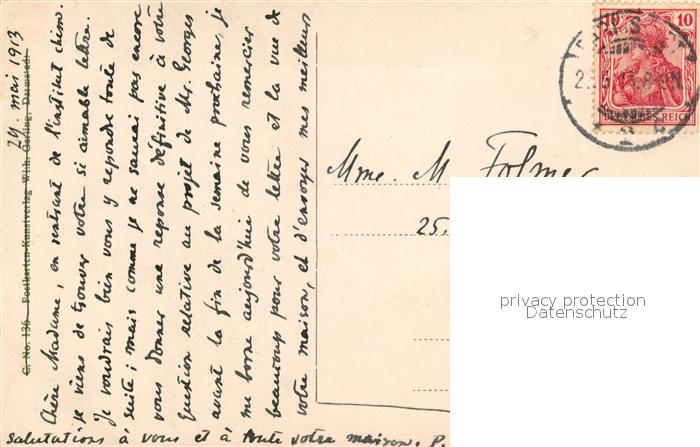 24. mai 1913
Chère Madame, en rentrant de l'institut chim.
je viens de trouver votre si aimable lettre.
Je voudrais bien vous y repondre toute de
suite; mais comme je ne saurai pas encore
vous donner une reponse définitive à votre
question relative au projet de Mr. Georges
avant la fin de la semaine prochaine, je
me borne aujourd'hui de vous remercier
beaucoup pour votre lettre et la vue de
votre maison, et d'envoyer mes meilleurs
salutations à vous et à toute votre maison. P.
G. No. 136. Postkarten-Kunstverlag Wilh. Gerling, Darmstadt
Mme. M. Folmer
25.
10 10
DEUTSCHES REICH
privacy protection
Datenschutz